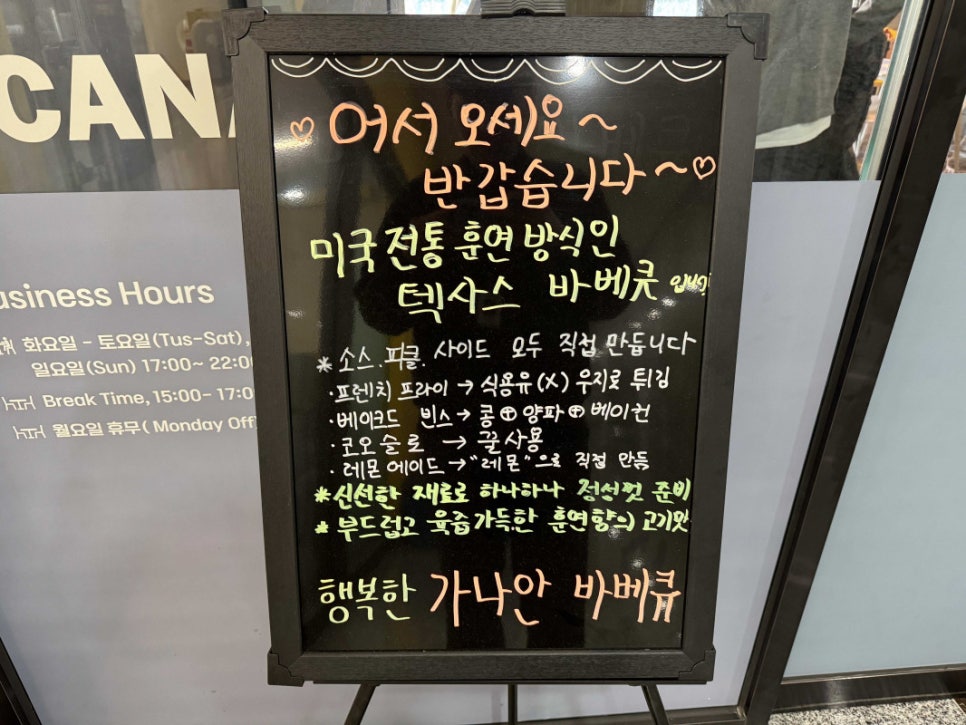 CANA
♡ 어서 오세요 ~
반갑습니다 ~♡
미국 전통 훈연 방식인
텍사스 바베큐 입니다
* 소스. 피클. 사이드 모두 직접 만듭니다
· 프렌치 프라이 → 식용유(X) 우지로 튀김
· 베이크드 빈스 → 콩⊕양파⊕베이컨
· 코오슬로 → 꿀사용
· 레몬에이드 → "레몬"으로 직접 만듬
* 신선한 재료로 하나하나 정성껏 준비
* 부드럽고 육즙가득한 훈연향의 고기맛
행복한 가나안 바베큐
usiness Hours
화요일 - 토요일(Tus-Sat),
일요일(Sun) 17:00~ 22:00
Break Time, 15:00- 17:0
월요일 휴무( Monday Off